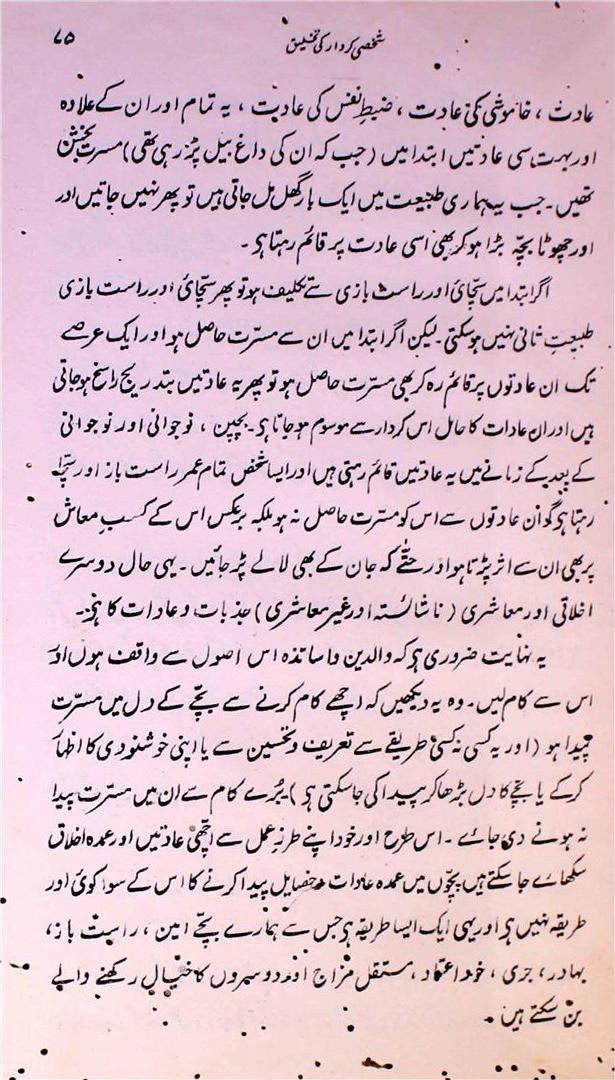 شخصی کردار کی تخلیق
۷۵
عادت ، خاموشی کی عادت ، ضبطِ نفس کی عادت ، یہ تمام اور ان کے علاوہ
اور بہت سی عادتیں ابتدا میں (جب کہ ان کی داغ بیل پڑ رہی تھی) مسرت بخش
تھیں۔ جب یہ ہماری طبیعت میں ایک بار گھل مل جاتی ہیں تو پھر نہیں جاتیں اور
اور چھوٹا بچّہ بڑا ہو کر بھی اسی عادت پر قائم رہتا ہو۔
اگر ابتدا میں سچّائی اور راست بازی سے تکلیف ہو تو پھر سچّائی اور راست بازی
طبیعتِ ثانی نہیں ہو سکتی۔ لیکن اگر ابتدا میں ان سے مسرّت حاصل ہو اور ایک عرصے
تک ان عادتوں پر قائم رہ کر بھی مسرّت حاصل ہو تو پھر یہ عادتیں بتدریج راسخ ہو جاتی
ہیں اور ان عادات کا حامل اس کردار سے موسوم ہو جاتا ہو۔ بچپن ، نوجوانی اور نوجوانی
کے بعد کے زمانے میں یہ عادتیں قائم رہتی ہیں اور ایسا شخص تمام عمر راست باز اور سچّا
رہتا ہو گو ان عادتوں سے اس کو مسرّت حاصل نہ ہو بلکہ برعکس اس کے کسبِ معاش
پر بھی ان سے اثر پڑتا ہو اور حتّٰے کہ جان کے بھی لالے پڑ جائیں۔ یہی حال دوسرے
اخلاقی اور معاشری (ناشائستہ اور غیر معاشری) جذبات و عادات کا ہو۔
یہ نہایت ضروری ہو کہ والدین و اساتذہ اس اصول سے واقف ہوں اور
اس سے کام لیں۔ وہ یہ دیکھیں کہ اچھے کام کرنے سے بچّے کے دل میں مسرّت
پیدا ہو (اور یہ کسی نہ کسی طریقے سے تعریف و تحسین سے یا اپنی خوشنودی کا اظہار
کر کے یا بچّے کا دل بڑھا کر پیدا کی جا سکتی ہو) بُرے کام سے ان میں مسرّت پیدا
نہ ہونے دی جائے۔ اس طرح اور خود اپنے طرزِ عمل سے اچّھی عادتیں اور عمدہ اخلاق
سکھائے جا سکتے ہیں بچّوں میں عمدہ عادات و خصایل پیدا کرنے کا اس کے سوا کوئی اور
طریقہ نہیں ہو اور یہی ایک ایسا طریقہ ہو جس سے ہمارے بچّے امین ، راست باز،
بہادر ، جری ، خود اعتماد ، مستقل مزاج اور دوسروں کا خیال رکھنے والے
بن سکتے ہیں۔